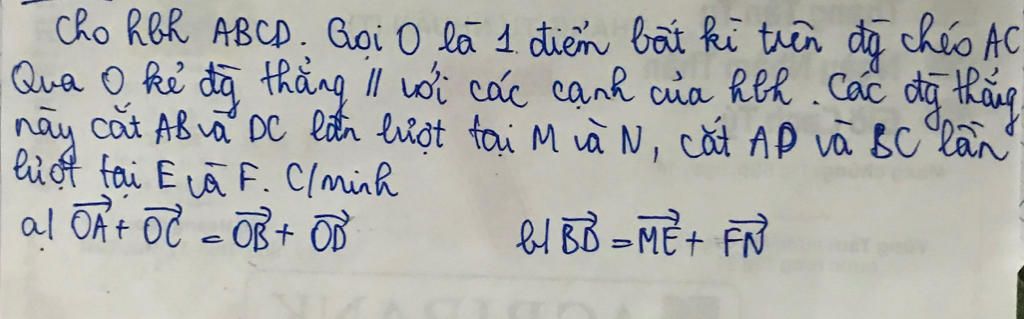 Cho hbh ABCD. Gọi O là 1 điểm bất kì trên đg chéo AC
Qua O kẻ đg thẳng // với các cạnh của hbh. Các đg thẳng
này cắt AB và DC lần lượt tại M và N, cắt AD và BC lần
lượt tại E và F. C/minh
a/ \overrightarrow{OA} + \overrightarrow{OC} = \overrightarrow{OB} + \overrightarrow{OD} b/ \overrightarrow{BD} = \overrightarrow{ME} + \overrightarrow{FN}